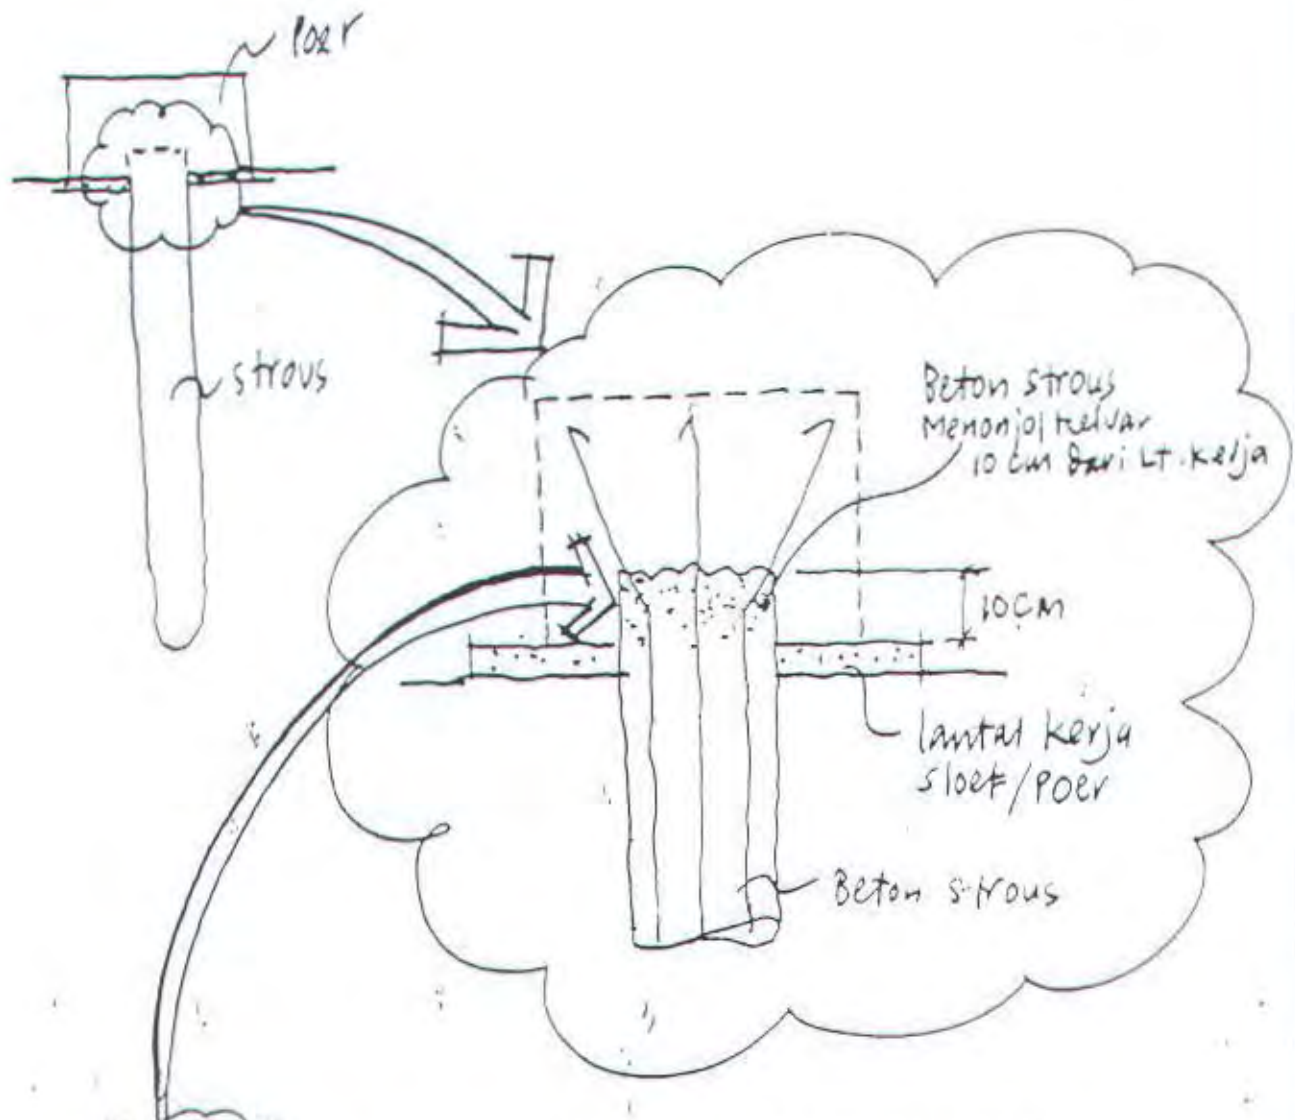 Poer
strous
Beton strous
Menonjol keluar
10 cm dari Lt. Kerja
10 cm
lantai kerja
sloef/Poer
Beton strous